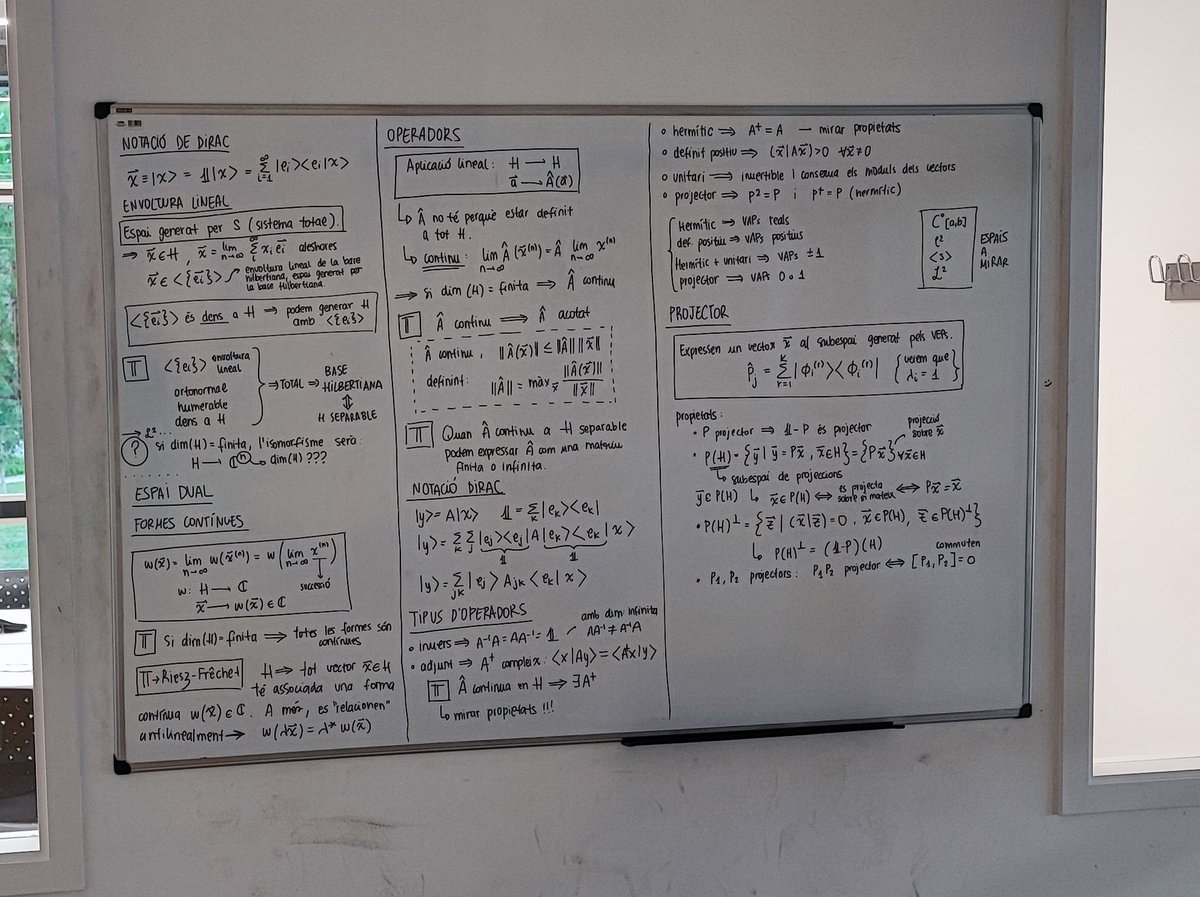 NOTACIÓ DE DIRAC
x⃗ ≡ |x> = 𝟙|x> = ∑_{i=1}^{∞} |e_i><e_i|x>
ENVOLTURA LINEAL
Espai generat per S (sistema total).
⇒ x⃗ ∈ H, x⃗ = lim_{n→∞} ∑_i^∞ x_i e⃗_i aleshores
x⃗ ∈ <{e⃗_i}>
envoltura lineal de la base
hilbertiana, espai generat per
la base Hilbertiana.
<{e⃗_i}> és dens a H ⇒ podem generar H
amb <{e_i}>
T <{e_i}> envoltura
lineal
ortonormal
numerable
dens a H
⇒ TOTAL ⇒ BASE
HILBERTIANA
⇕
H SEPARABLE
→ L²...
? si dim(H) = finita, l'isomorfisme serà:
H → ℂⁿ → dim(H) ???
ESPAI DUAL
FORMES CONTÍNUES
w(x⃗) = lim_{n→∞} w(x⃗^(n)) = w(lim_{n→∞} x^(n))
successió
w: H → ℂ
x⃗ → w(x⃗) ∈ ℂ
T Si dim(H) = finita ⇒ totes les formes són
contínues
T → Riesz-Frêchet H ⇒ tot vector x⃗ ∈ H
té associada una forma
contínua w(x⃗) ∈ ℂ. A més, es "relacionen"
antilinealment → w(λx⃗) = λ* w(x⃗)
OPERADORS
Aplicació lineal: H → H
a⃗ → Â(a⃗)
↳ Â no té perquè estar definit
a tot H.
↳ continu: lim_{n→∞} Â(x⃗^(n)) = Â lim_{n→∞} x^(n)
⇒ Si dim(H) = finita ⇒ Â continu
T Â continu ⇒ Â acotat
Â continu, ||Â(x⃗)|| ≤ ||Â|| ||x⃗||
definint: ||Â|| = màx_x⃗ ||Â(x⃗)|| / ||x⃗||
T Quan Â continu a H separable
podem expressar Â com una matriu
finita o infinita.
NOTACIÓ DIRAC
|y> = A|x> 𝟙 = ∑_k |e_k><e_k|
|y> = ∑_k ∑_j |e_j><e_j|A|e_k><e_k|x>
𝟙 𝟙
|y> = ∑_{jk} |e_j> A_jk <e_k|x>
TIPUS D'OPERADORS
amb dim. infinita
• invers ⇒ A⁻¹A = AA⁻¹ = 𝟙 AA⁻¹ ≠ A⁻¹A
• adjunt ⇒ A⁺ compleix: <x|Ay> = <A⁺x|y>
T Â continua en H ⇒ ∃A⁺
↳ mirar propietats !!!
• hermític ⇒ A⁺ = A — mirar propietats
• definit positiu ⇒ (x⃗|Ax⃗) > 0 ∀x⃗ ≠ 0
• unitari ⇒ invertible i conserva els mòduls dels vectors
• projector ⇒ P² = P i P⁺ = P (hermític)
Hermític ⇒ VAPs reals
def. positiu ⇒ VAPs positius
Hermític + unitari ⇒ VAPs ±1
projector ⇒ VAPs 0 o 1
C°[a,b]
ℓ²
<s>
L²
ESPAIS
A
MIRAR
PROJECTOR
Expressen un vector x⃗ al subespai generat pels VEPs.
P̂_j = ∑_{r=1}^{k} |ϕ_i^(r)><ϕ_i^(r)| {veiem que
λ_i = 1}
propietats:
• P projector ⇒ 𝟙-P és projector
projecció
sobre x⃗
• P(H) = {y⃗ | y⃗ = Px⃗, x⃗ ∈ H} = {Px⃗} ∀x⃗ ∈ H
↳ subespai de projeccions
y⃗ ∈ P(H) ↳ x⃗ ∈ P(H) ⇔ es projecta
sobre si mateix ⇔ Px⃗ = x⃗
• P(H)^⊥ = {z⃗ | (x⃗|z⃗) = 0. x⃗ ∈ P(H), z⃗ ∈ P(H)^⊥}
↳ P(H)^⊥ = (𝟙-P)(H)
commuten
• P₁, P₂ projectors: P₁P₂ projector ⇔ [P₁, P₂] = 0